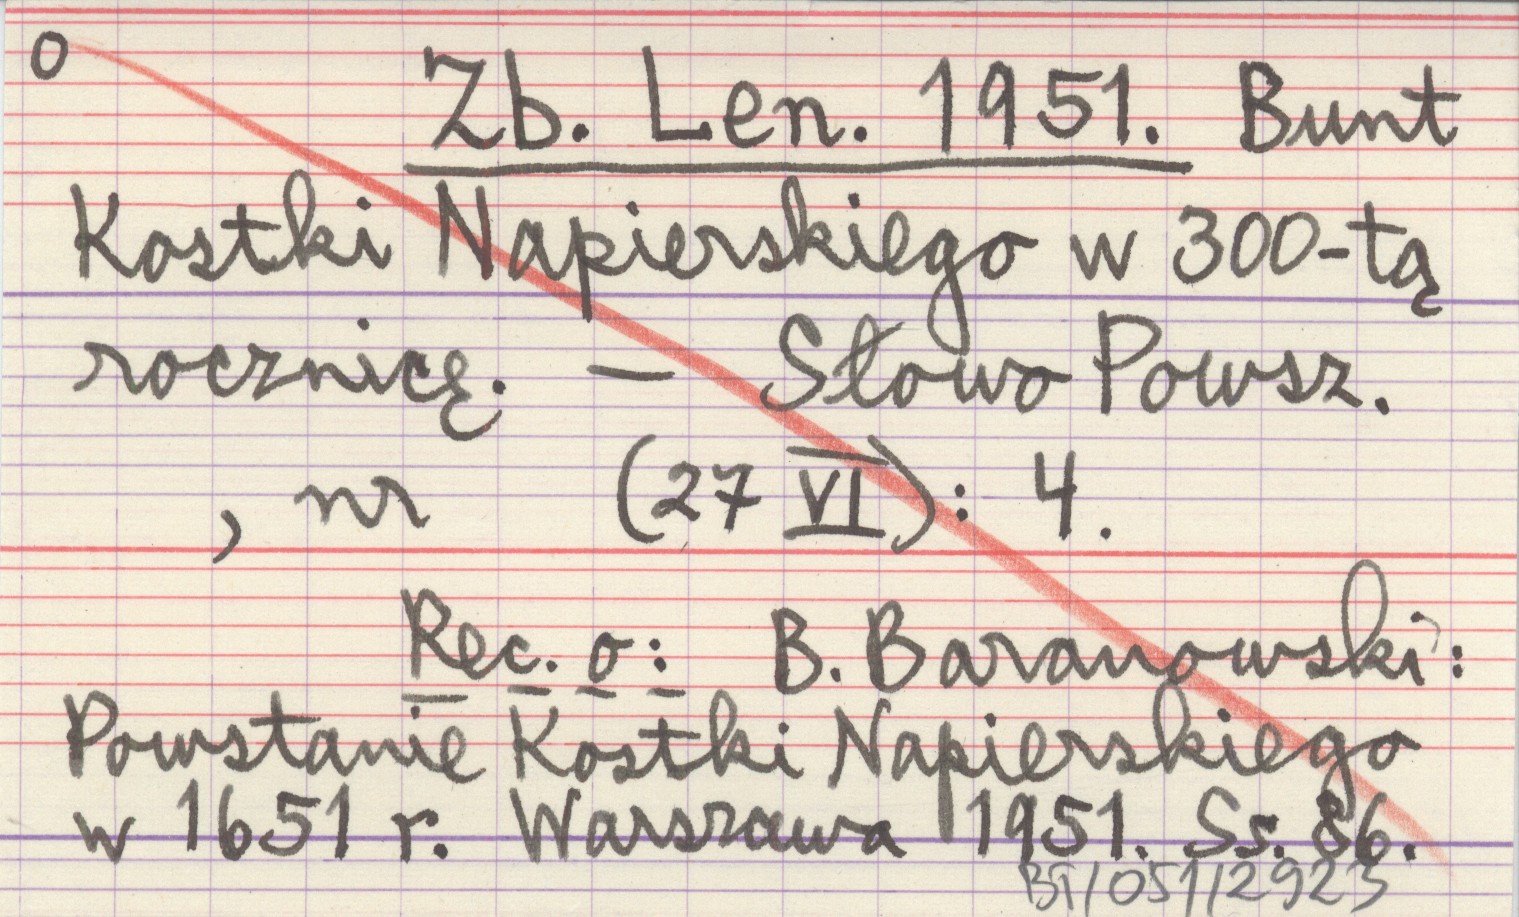 o
Zb. Len. 1951. Bunt
Kostki Napierskiego w 300-tą
rocznicę. — Słowo Powsz.
, nr (27 VI): 4.
Rec. o: B. Baranowski:
Powstanie Kostki Napierskiego
w 1651 r. Warszawa 1951. Ss. 86.
BT/051/2923